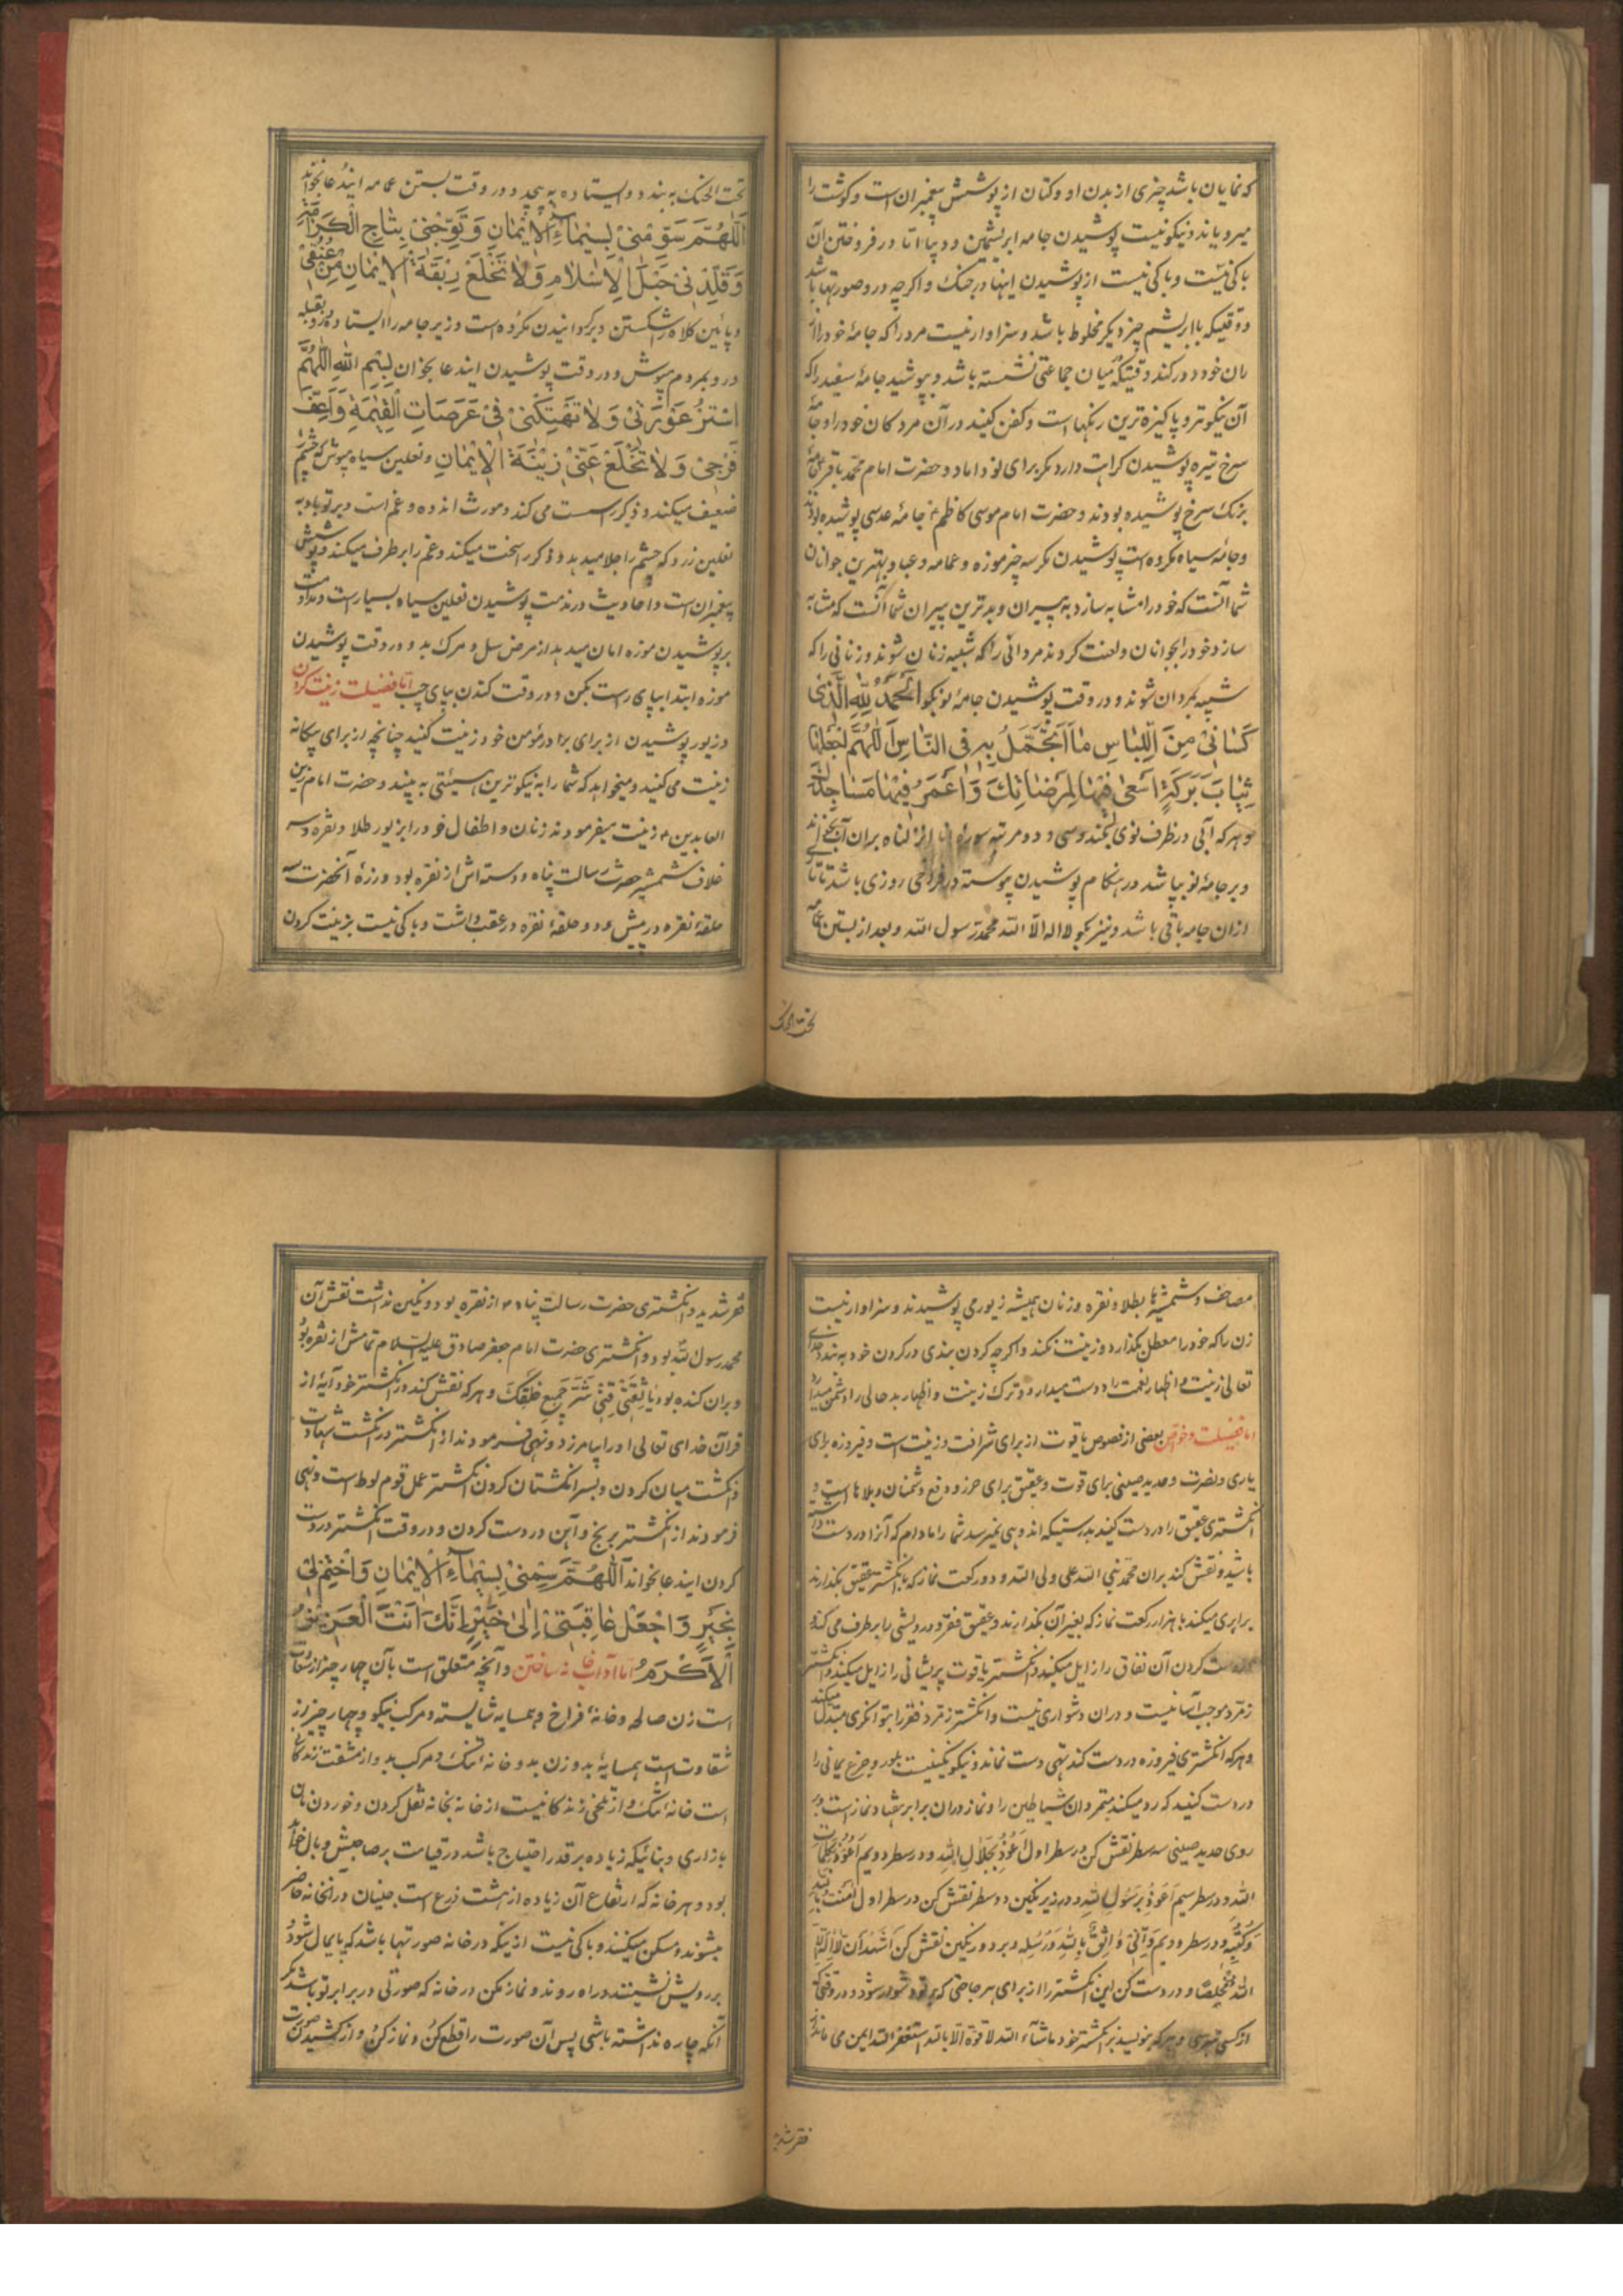 که نمایان باشد چیزی از بدن او و کتان از پوشش پیغمبران است و گوشت را
میرویاند و نیکو نیست پوشیدن جامه ابریشمین و دیبا اما در فروختن آن
باکی نیست و باکی نیست از پوشیدن اینها در جنک و اکرچه در و صورتها باشد
و وقتیکه با ابریشم چیز دیکر مخلوط باشد و سزاوار نیست مرد را که جامهٔ خود را از
ران خود دور کند وقتیکه میان جماعتی نشسته باشد و بپوشید جامهٔ سفید را که
آن نیکوتر و پاکیزه ترین رنکهاست و کفن کنید در آن مردکان خود را و جامهٔ
سرخ تیره پوشیدن کراهت دارد مکر برای نو داماد و حضرت امام محمد باقر جامهٔ
برنک سرخ پوشیده بودند و حضرت امام موسی کاظم جامه عدسی پوشیده بودند
و جامهٔ سیاه مکروه است پوشیدن مکر سه چیز موزه و عمامه و عبا و بهترین جوانان
شما آنست که خود را مشابه سازد به پیران و بدترین پیران شما آنست که مشابه
سازد خود را بجوانان و لعنت کردند مردانی را که شبیه زنان شوند و زنانی را که
شبیه بمردان شوند و در وقت پوشیدن جامهٔ نو بکو الحَمدُ لِلّهِ الَّذی
کَسانی مِنَ اللِّباسِ ما اَتَجَمَّلُ بِهِ فِی النّاسِ اَللّهُمَّ اجعَلها
ثِیابَ بَرَکَةٍ اَسعی فیها لِمَرضاتِکَ وَاَعمُرُ فیها مَساجِدَکَ
و هرکه آبی در ظرف نوی بکند و سی و دو مرتبه سورهٔ انا انزلناه بران آب بخواند
و بر جامهٔ نو بپاشد در هنکام پوشیدن پیوسته در فراخی روزی باشد تا تاری
ازان جامه باقی باشد و نیز بکو لا اله الّا الله محمّد رسول الله و بعد از بستن عمامه
تحت الحنک
تحت الحنک به بندد و ایستاده به پیچد و در وقت بستن عمامه ایندعا بخواند
اَللّهُمَّ سَوِّمنی بِسیماءِ الاِیمانِ وَ تَوِّجنی بِتاجِ الکَرامَةِ
وَقَلِّدنی حَبلَ الاِسلامِ وَلا تَخلَع رِبقَةَ الاِیمانِ مِن عُنُقی
و پائین کلاه را شکستن و برکردانیدن مکروه است و زیر جامه را ایستاده و رو بقبله
و رو بمردم مپوش و در وقت پوشیدن ایندعا بخوان بِسمِ اللهِ اللّهُمَّ
استُر عَورَتی وَلا تَهتِکنی فی عَرَصاتِ القِیمَةِ وَاَعِفَّ
فَرجی وَلا تَخلَع عَنّی زینَةَ الاِیمانِ و نعلین سیاه مپوش که چشم را
ضعیف میکند و ذکر را سست می کند و مورث اندوه و غم است و بر تو باد به
نعلین زرد که چشم را جلا میدهد و ذکر را سخت میکند و غم را بر طرف میکند و پوشش
پیغمبران است و احادیث در مذمت پوشیدن نعلین سیاه بسیار است و مداومت
بر پوشیدن موزه امان میدهد از مرض سل و مرک بد و در وقت پوشیدن
موزه ابتدا بپای راست بکن و در وقت کندن بپای چپ اما فضیلت زینت کردن
و زیور پوشیدن از برای برادر مؤمن خود زینت کنید چنانچه از برای بیکانه
زینت می کنید و میخواهد که شما را به نیکوترین هیئتی به بیند و حضرت امام زین
العابدین زینت میفرمودند زنان و اطفال خود را بزیور طلا و نقره و سر
غلاف شمشیر حضرت رسالت پناه و دسته اش از نقره بود و زرهٔ آنحضرت سه
حلقهٔ نقره در پیش و دو حلقهٔ نقره در عقب داشت و باکی نیست بزینت کردن
مصاحف و شمشیرها بطلا و نقره و زنان همیشه زیور می پوشیدند و سزاوار نیست
زن را که خود را معطل بکذارد و زینت نکند و اکرچه کردن بندی در کردن خود به بندد خدای
تعالی زینت و اظهار نعمت را دوست میدارد و ترک زینت و اظهار بدحالی را دشمن میدارد
اما فضیلت و خواص بعضی از فصوص یاقوت از برای شرافت و زینت است و فیروزه برای
یاری و نصرت و حدید صینی برای قوت و عقیق برای حرز و دفع دشمنان و بلاها است و
انکشتری عقیق را در دست کنید بدرستیکه اندوهی نمیرسد شما را مادام که آنرا در دست داشته
باشید و نقش کند بران محمّد نبی الله علی ولی الله و دو رکعت نماز که با انکشتر عقیق بکذارند
برابری میکند با هزار رکعت نماز که بغیر آن بکذارند و عقیق فقر و درویشی را برطرف می کند و
دست کردن آن نفاق را زایل میکند و انکشتر یاقوت پریشانی را زایل میکند و انکشتر
زمرد موجب آسانیست و دران دشواری نیست و انکشتر زمرد فقر را بتوانکری مبدل میکند
و هرکه انکشتری فیروزه در دست کند تهی دست نماند و نیکو نکینیست بلور و جزع یمانی را
در دست کنید که رد میکند متمردان شیاطین را و نماز دران برابر هفتاد نماز است و بر
روی حدید صینی سه سطر نقش کن در سطر اول اَعُوذُ بِجَلالِ اللهِ و در سطر دویم اَعُوذُ بِکَلِماتِ
اللهِ و در سطر سیم اَعُوذُ بِرَسُولِ اللهِ و در زیر نکین دو سطر نقش کن در سطر اول آمَنتُ بِاللهِ
وَکُتُبِهِ و در سطر دویم وَاِنّی واثِقٌ بِاللهِ وَرُسُلِهِ و بر دور نکین نقش کن اَشهَدُ اَن لا اِلهَ اِلَّا
اللهُ مُخلِصًا و در دست کن این انکشتر را از برای هر حاجتی که بر تو دشوار شود و در وقتی که
از کسی بترسی و هرکه بنویسد بر انکشتر خود ماشآء الله لا قوة الّا بالله استغفر الله ایمن می ماند از
فقر شدید
فقر شدید و انکشتری حضرت رسالت پناه از نقره بود و نکین نداشت نقش آن
محمد رسول الله بود و انکشتری حضرت امام جعفر صادق علیه السلام تمامش از نقره بود
و بران کنده بود یا ثِقَتی قِنی شَرَّ جَمیعِ خَلقِکَ و هرکه نقش کند در انکشتر خود آیهٔ از
قرآن خدای تعالی او را بیامرزد و نهی فرمودند از انکشتر در انکشت شهادت
و انکشت میان کردن و بسر انکشتان کردن انکشتر عمل قوم لوط است و نهی
فرمودند از انکشتر برنج و آهن در دست کردن و در وقت انکشتر در دست
کردن ایندعا بخواند اَللّهُمَّ سَوِّمنی بِسیمآءِ الاِیمانِ وَاختِم لی
بِخَیرٍ وَاجعَل عاقِبَتی اِلی خَیرٍ اِنَّکَ اَنتَ العَزیزُ
الاَکرَمُ اما آداب خانه ساختن و آنچه متعلق است بآن چهار چیز از سعادت
است زن صالحه و خانهٔ فراخ و همسایه شایسته و مرکب نیکو و چهار چیز از
شقاوت است همسایهٔ بد و زن بد و خانهٔ تنک و مرکب بد و از مشقت زندکانی
است خانهٔ تنک و از تلخی زندکانیست از خانه بخانه نقل کردن و خوردن نان
بازاری و بنائیکه زیاده بر قدر احتیاج باشد در قیامت بر صاحبش وبال خواهد
بود و هر خانه که ارتفاع آن زیاده از هشت ذرع است جنیان در آنخانه حاضر
میشوند و مسکن میکنند و باکی نیست ازینکه در خانه صورتها باشد که پایمال شود و
بر رویش نشینند و راه روند و نماز مکن در خانه که صورتی در برابر تو باشد مکر
آنکه چاره نداشته باشی پس آن صورت را قطع کن و نماز کن و از کشیدن صورت